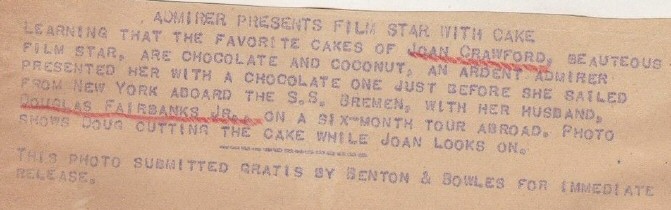 ADMIRER PRESENTS FILM STAR WITH CAKE
LEARNING THAT THE FAVORITE CAKES OF JOAN CRAWFORD, BEAUTEOUS
FILM STAR, ARE CHOCOLATE AND COCONUT, AN ARDENT ADMIRER
PRESENTED HER WITH A CHOCOLATE ONE JUST BEFORE SHE SAILED
FROM NEW YORK ABOARD THE S.S. BREMEN, WITH HER HUSBAND,
DOUGLAS FAIRBANKS JR., ON A SIX-MONTH TOUR ABROAD. PHOTO
SHOWS DOUG CUTTING THE CAKE WHILE JOAN LOOKS ON.
THIS PHOTO SUBMITTED GRATIS BY BENTON & BOWLES FOR IMMEDIATE
RELEASE.